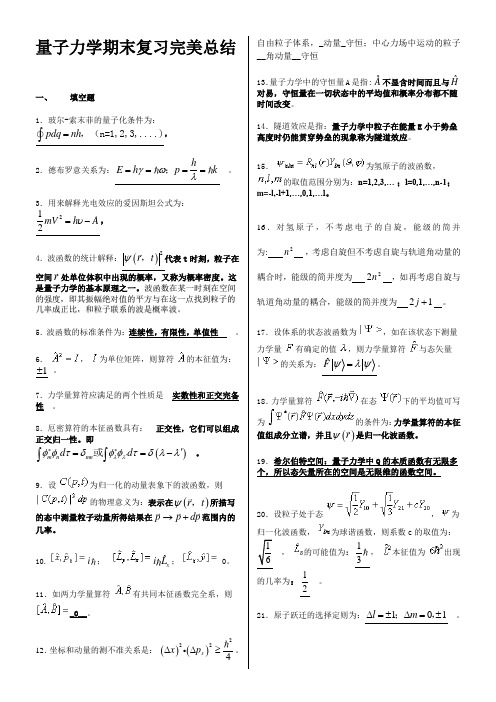 量子力学期末复习完美总结
一、 填空题
1．玻尔-索末菲的量子化条件为：
∮pdq = nh，（n=1,2,3,....），
2．德布罗意关系为：E = hγ = ħω; p = h/λ = ħk 。
3．用来解释光电效应的爱因斯坦公式为：
1/2 mV² = hυ − A，
4．波函数的统计解释：|ψ(r，t)|²代表t时刻，粒子在
空间r处单位体积中出现的概率，又称为概率密度。这
是量子力学的基本原理之一。波函数在某一时刻在空间
的强度，即其振幅绝对值的平方与在这一点找到粒子的
几率成正比，和粒子联系的波是概率波。
5．波函数的标准条件为：连续性，有限性，单值性 。
6． Â² = I， I为单位矩阵，则算符Â的本征值为：
±1 。
7．力学量算符应满足的两个性质是 实数性和正交完备
性 。
8．厄密算符的本征函数具有： 正交性，它们可以组成
正交归一性。即
∫φ*ₘφₙdτ = δₘₙ或∫φ*_λφ_λ'dτ = δ(λ − λ') 。
9．设 C(p,t)为归一化的动量表象下的波函数，则
|C(p,t)|²dp的物理意义为：表示在ψ(r，t)所描写
的态中测量粒子动量所得结果在p → p + dp范围内的
几率。
10. [x̂,p̂ₓ]= iħ； [L̂y,L̂z]= iħL̂ₓ； 0。
11．如两力学量算符 Â,B̂有共同本征函数完全系，则
[Â,B̂]=_0__。
12．坐标和动量的测不准关系是： (Δx)²•(Δpₓ)² ≥ ħ²/4。
自由粒子体系，_动量_守恒；中心力场中运动的粒子
__角动量__守恒
13.量子力学中的守恒量A是指：Â不显含时间而且与Ĥ
对易，守恒量在一切状态中的平均值和概率分布都不随
时间改变。
14．隧道效应是指：量子力学中粒子在能量E小于势垒
高度时仍能贯穿势垒的现象称为隧道效应。
15． ψnlm = Rnl(r)Ylm(θ,φ)为氢原子的波函数，
n,l,m的取值范围分别为：n=1,2,3,… ；l=0,1,…,n-1；
m=-l,-l+1,…,0,1,…l。
16．对氢原子，不考虑电子的自旋，能级的简并
为： n² ，考虑自旋但不考虑自旋与轨道角动量的
耦合时，能级的简并度为 2n² ，如再考虑自旋与
轨道角动量的耦合，能级的简并度为 2j+1 。
17．设体系的状态波函数为|Ψ>，如在该状态下测量
力学量F有确定的值λ，则力学量算符F̂与态矢量
|Ψ>的关系为：F̂|ψ⟩ = λ|ψ⟩。
18.力学量算符F̂(r̂,-iħ∇̂)在态Ψ(r̂)下的平均值可写
为∫Ψ*(r̂)F̂Ψ(r̂)dxdydz的条件为：力学量算符的本征
值组成分立谱，并且ψ(r)是归一化波函数。
19．希尔伯特空间：量子力学中Q的本质函数有无限多
个，所以态矢量所在的空间是无限维的函数空间。
20．设粒子处于态 ψ = √(1/2) Y10 + √(1/3) Y21 + cY20，ψ为
归一化波函数，Ylm为球谐函数，则系数c的取值为：
√(1/6) ，L̂z的可能值为：1/3 ħ，L̂²本征值为6ħ²出现
的几率为： 1/2 。
21．原子跃迁的选择定则为：Δl = ±1；Δm = 0,±1 。